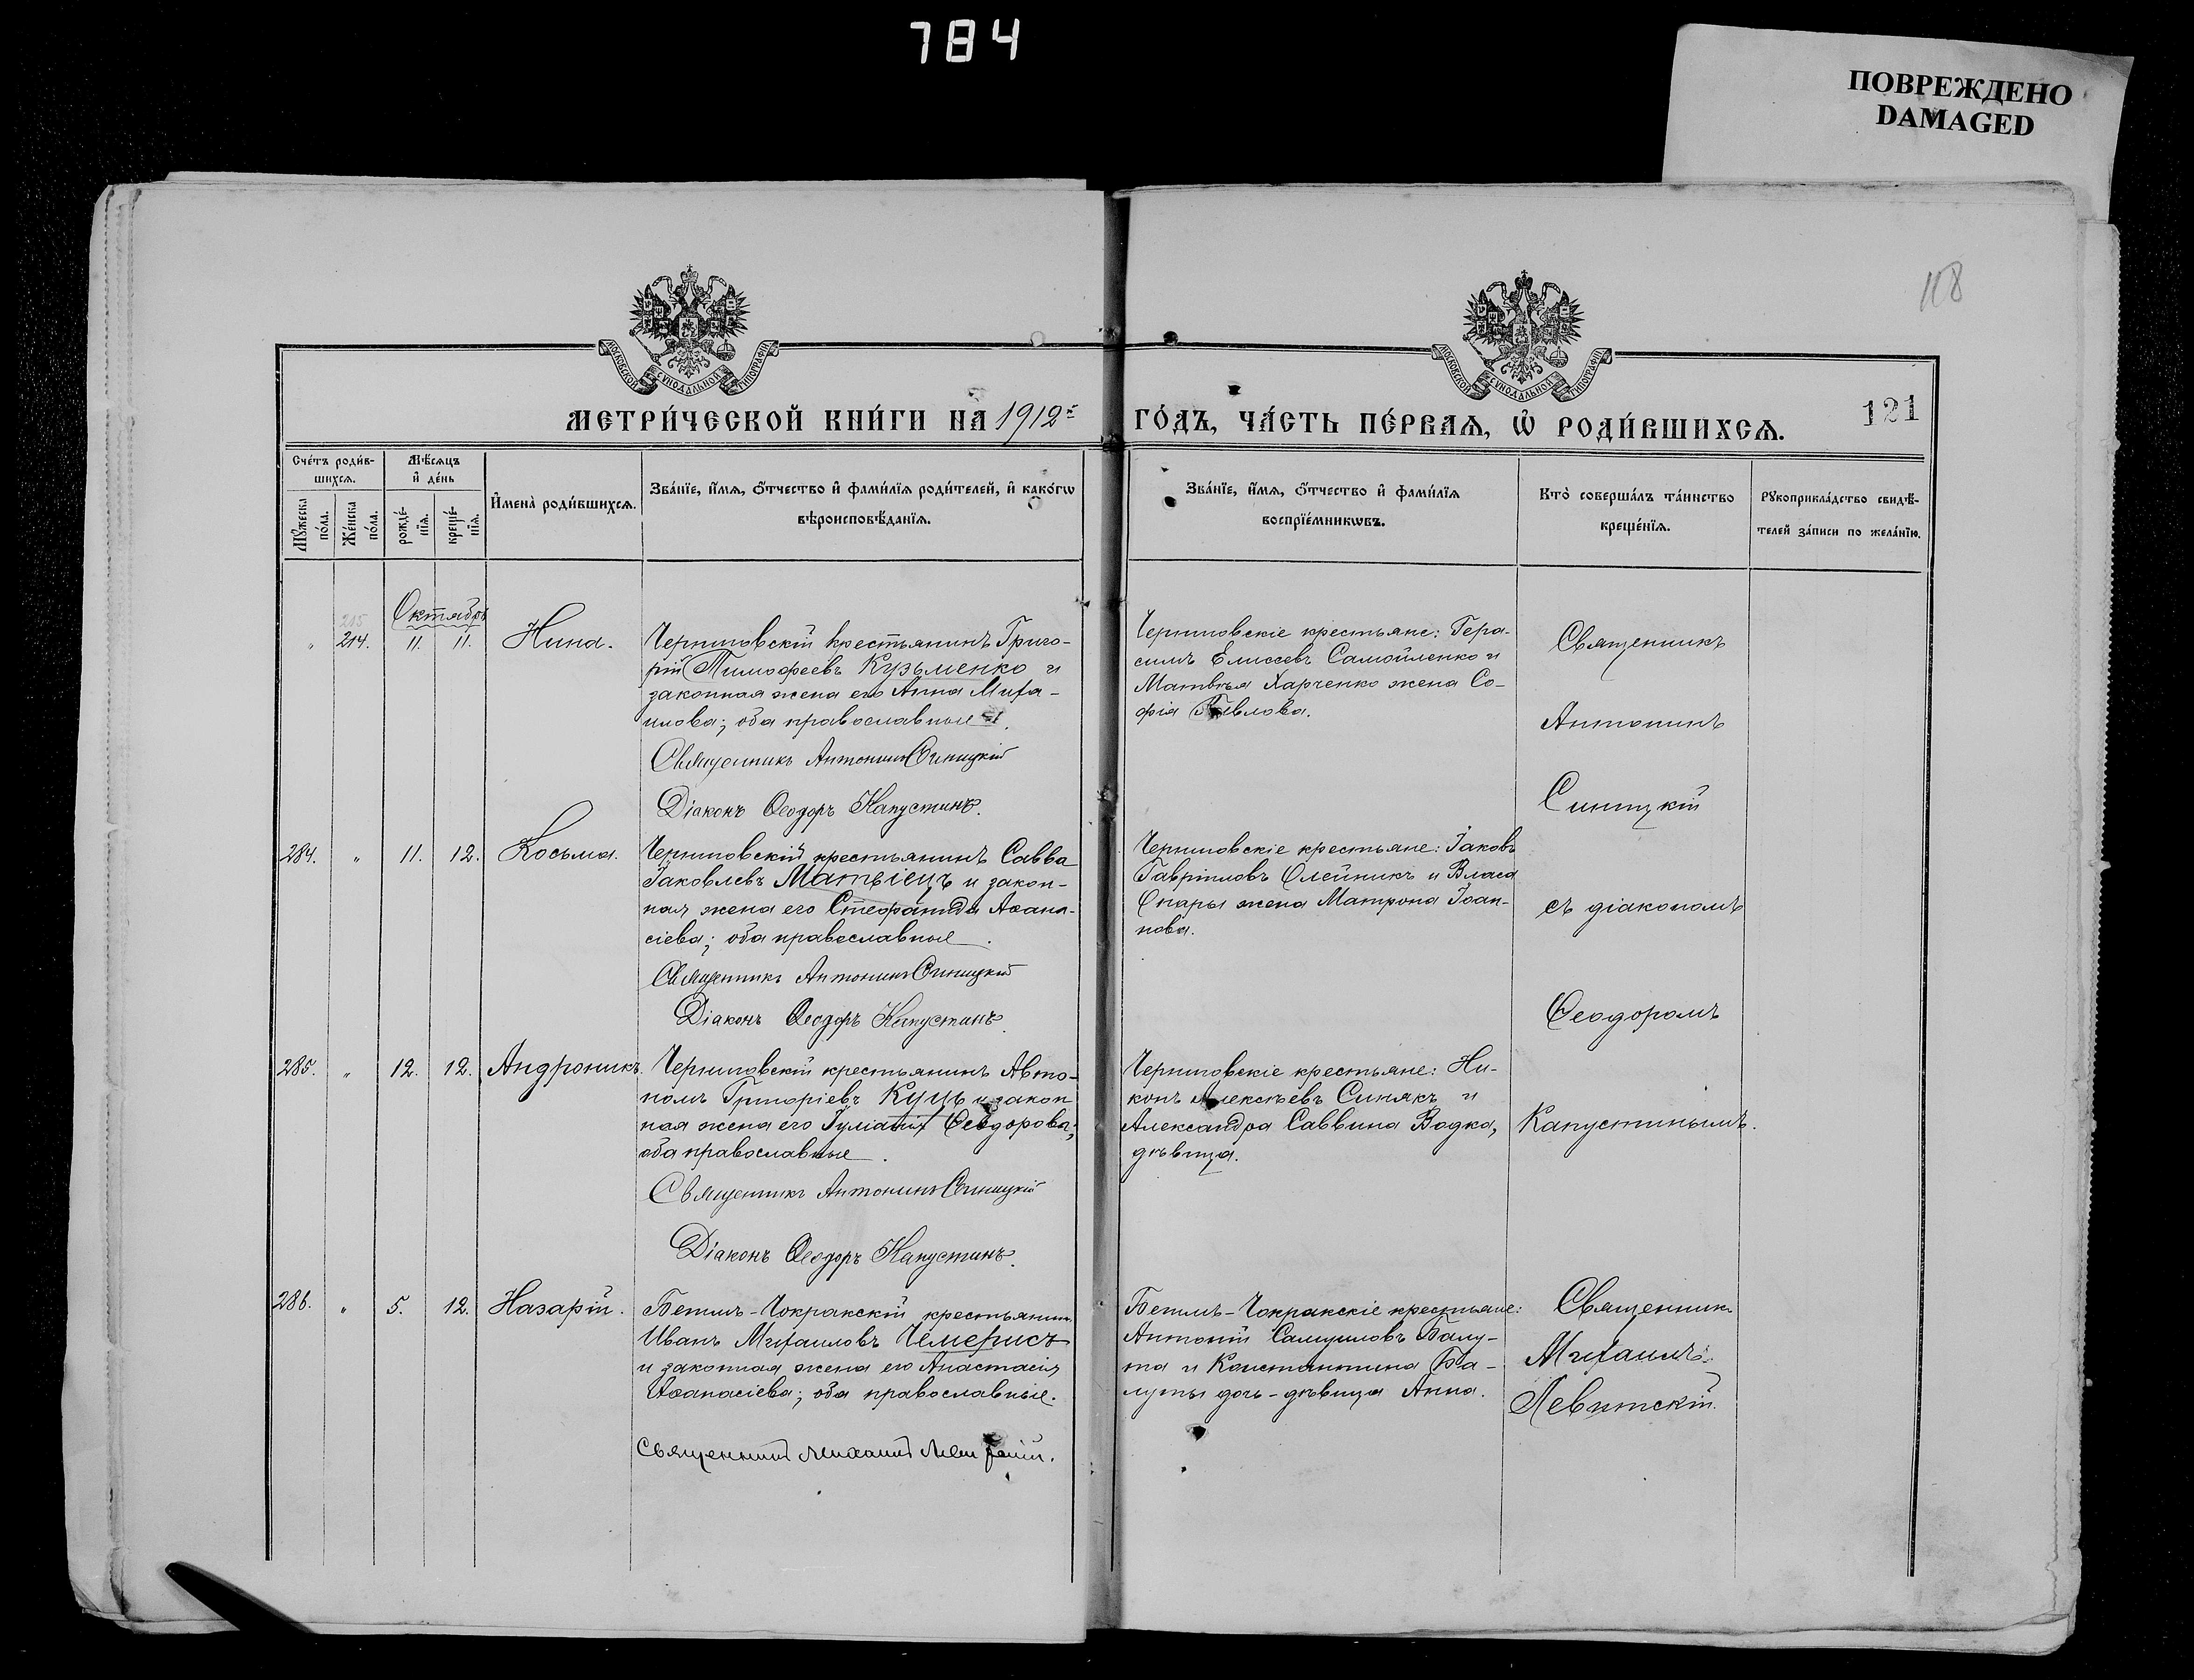 784
ПОВРЕЖДЕНО
DAMAGED
118
МОСКОВСКОЙ СУНОДАЛЬНОЙ ТИПОГРАФІИ
МОСКОВСКОЙ СУНОДАЛЬНОЙ ТИПОГРАФІИ
МЕТРИ́ЧЕСКОЙ КНИ́ГИ НА 1912й
ГО́ДЪ, ЧА́СТЬ ПЕ́РВАѦ, Ѡ҆ РОДИ́ВШИХСѦ.
121
Сче́тъ роди́в-
шихсѧ.
Мꙋ́жеска по́ла.
Же́нска по́ла.
Мѣ́сѧцъ
и҆ де́нь
рожде́-нїѧ.
креще́-нїѧ.
И҆мена̀ роди́вшихсѧ.
Зва́нїе, и҆́мѧ, ѻ҆́тчество и҆ фами́лїѧ роди́телей, и҆ како́гѡ
вѣроисповѣ́данїѧ.
Зва́нїе, и҆́мѧ, ѻ҆́тчество и҆ фами́лїѧ
воспрїе́мникѡвъ.
Кто̀ соверша́лъ та́инство
креще́нїѧ.
Рꙋкоприкла́дство свидѣ́-
телей за́писи по жела́нїю.
Октябрь
215
" 214. 11. 11. Нина.
Черниговскій крестьянинъ Григо-
рій Тимофеевъ Кузьменко и
законная жена его Анна Миха-
илова; оба православные.
Священникъ Антонинъ Синицкій
Діаконъ Ѳеодоръ Капустинъ.
Черниговскіе крестьяне: Гера-
симъ Елисеевъ Самойленко и
Матвѣя Харченко жена Со-
фія Павлова.
Священникъ
Антонинъ
Синицкій
съ діакономъ
Ѳеодоромъ
Капустинымъ.
284. " 11. 12. Косьма.
Черниговскій крестьянинъ Савва
Іаковлевъ Матвіецъ и закон-
ная жена его Стефанида Аѳана-
сіева; оба православные.
Священникъ Антонинъ Синицкій
Діаконъ Ѳеодоръ Капустинъ.
Черниговскіе крестьяне: Іаковъ
Гавріиловъ Олейникъ и Власа
Опары жена Матрона Іоан-
нова.
285. " 12. 12. Андроникъ.
Черниговскій крестьянинъ Авто-
номъ Григоріевъ Куцъ и закон
ная жена его Іуліанія Ѳеодорова;
оба православные.
Священникъ Антонинъ Синицкій
Діаконъ Ѳеодоръ Капустинъ.
Черниговскіе крестьяне: Ни-
конъ Алексѣевъ Синякъ и
Александра Саввина Водка,
дѣвица.
286. " 5. 12. Назарій.
Бегимъ-Чокракскій крестьянинъ
Иванъ Михаиловъ Чемерисъ
и законная жена его Анастасія
Аѳанасіева; оба православные.
Священникъ Михаилъ
Бегимъ-Чокракскіе крестьяне:
Антоній Самуиловъ Балу-
та и Константина Ба-
луты дочь-дѣвица Анна.
Священникъ
Михаилъ
Левитскій.